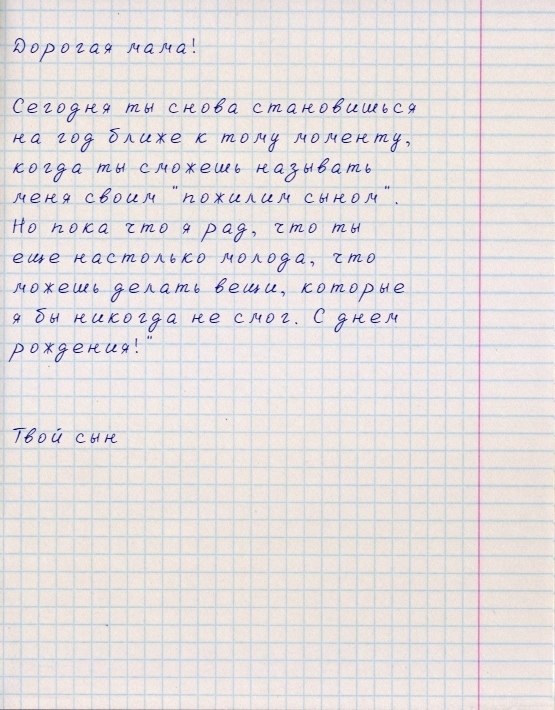 Дорогая мама!
Сегодня ты снова становишься
на год ближе к тому моменту,
когда ты сможешь называть
меня своим "пожилим сыном".
Но пока что я рад, что ты
еще настолько молода, что
можешь делать вещи, которые
я бы никогда не смог. С днем
рождения!"
Твой сын